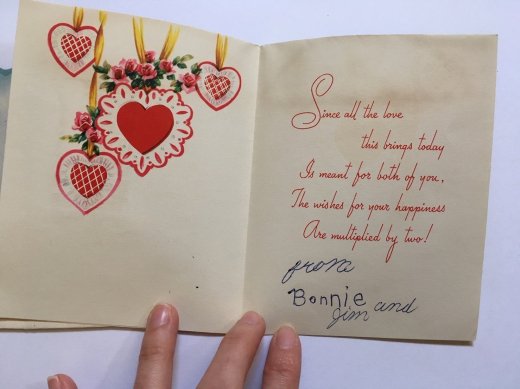 Since all the love
this brings today
Is meant for both of you,
The wishes for your happiness
Are multiplied by two!
from
Bonnie and
Jim